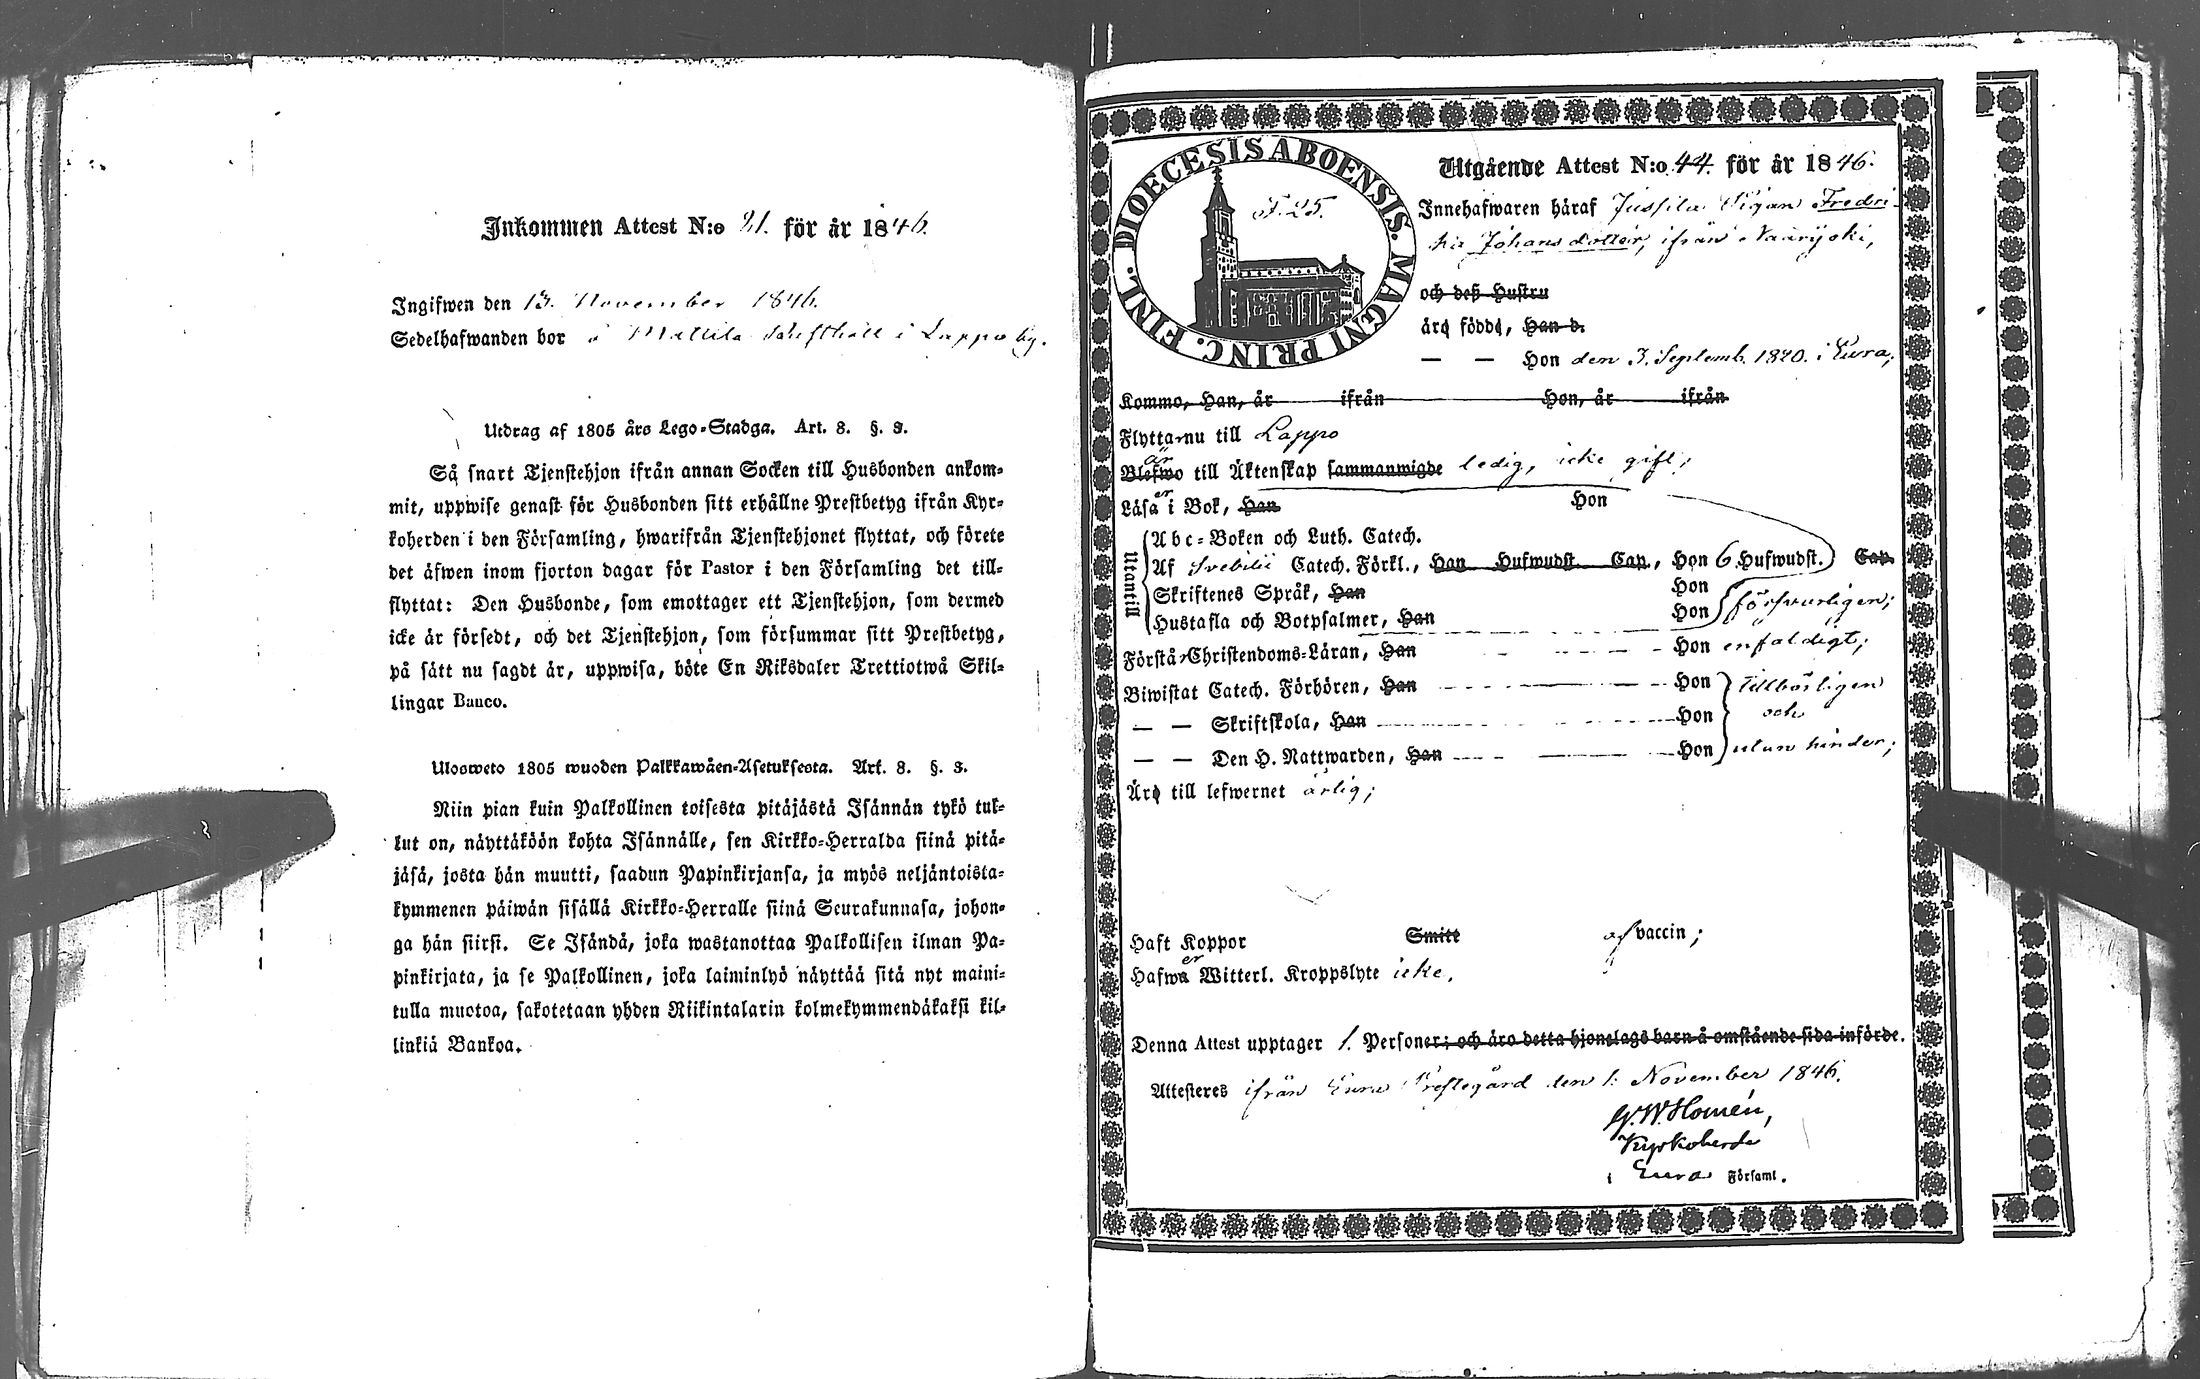 Inkommen Attest N:o 21. för år 1846.
Ingifwen den 13. November 1846.
Sedelhafwanden bor å Mattila i Lappo by.
Utdrag af 1805 års Lego-Stadga. Art. 8. §. 3.
Så snart Tjenstehjon ifrån annan Socken till Husbonden ankom-
mit, uppwise genast för Husbonden sitt erhållne Prestbetyg ifrån Kyr-
koherden i den Församling, hwarifrån Tjenstehjonet flyttat, och förete
det äfwen inom fjorton dagar för Pastor i den Församling det till-
flyttat: Den Husbonde, som emottager ett Tjenstehjon, som dermed
icke är försedt, och det Tjenstehjon, som försummar sitt Prestbetyg,
på sätt nu sagdt är, uppwisa, böte En Riksdaler Trettiotwå Skil-
lingar Banco.
Ulosweto 1805 wuoden Palkkawäen-Asetuksesta. Art. 8. §. 3.
Niin pian kuin Palkollinen toisesta pitäjästä Isännän tykö tul-
lut on, näyttäköön kohta Isännälle, sen Kirkko-Herralda siinä pitä-
jäsä, josta hän muutti, saadun Papinkirjansa, ja myös neljäntoista-
kymmenen päiwän sisällä Kirkko-Herralle siinä Seurakunnasa, johon-
ga hän siirsi. Se Isändä, joka wastanottaa Palkollisen ilman Pa-
pinkirjata, ja se Palkollinen, joka laiminlyö näyttää sitä nyt maini-
tulla muotoa, sakotetaan yhden Riikintalarin kolmekymmendäkaksi kil-
linkiä Bankoa.
DIOECESIS ABOENSIS. MAGNI PRINC. FINL.
F. 25.
Utgående Attest N:o 44. för år 1846.
Innehafwaren häraf Jussila Pigan Fredri-
ka Johansdotter, ifrån Naarjoki,
och deß Hustru
äro födde, Han d.
— — Hon den 3. Septemb. 1820. i Eura,
Kommo, Han, år ifrån Hon, år ifrån
Flytta nu till Lappo
är
Blefwo till Äktenskap sammanwigde ledig, icke gift;
er
Läsa i Bok, Han Hon
Utantill
Abc-Boken och Luth. Catech.
Af Svebilii Catech. Förkl., Han Hufwudst. Cap., Hon 6 Hufwudst. Cap.
Skriftenes Språk, Han Hon
Hustafla och Botpsalmer, Han Hon försvarligen;
Förstå Christendoms-Läran, Han Hon enfaldigt;
Biwistat Catech. Förhören, Han Hon tillbörligen
— — Skriftskola, Han Hon och
— — Den H. Nattwarden, Han Hon utan hinder;
Äro till lefwernet ärlig;
Haft Koppor Smitt af vaccin;
er
Hafwa Witterl. Kroppslyte icke.
Denna Attest upptager 1. Personer; och äro detta hjonelags barn å omstående sida införde.
Attesteres ifrån Eura Prestegård den 1. November 1846.
G. W. Homén,
Kyrkoherde
i Eura Församl.